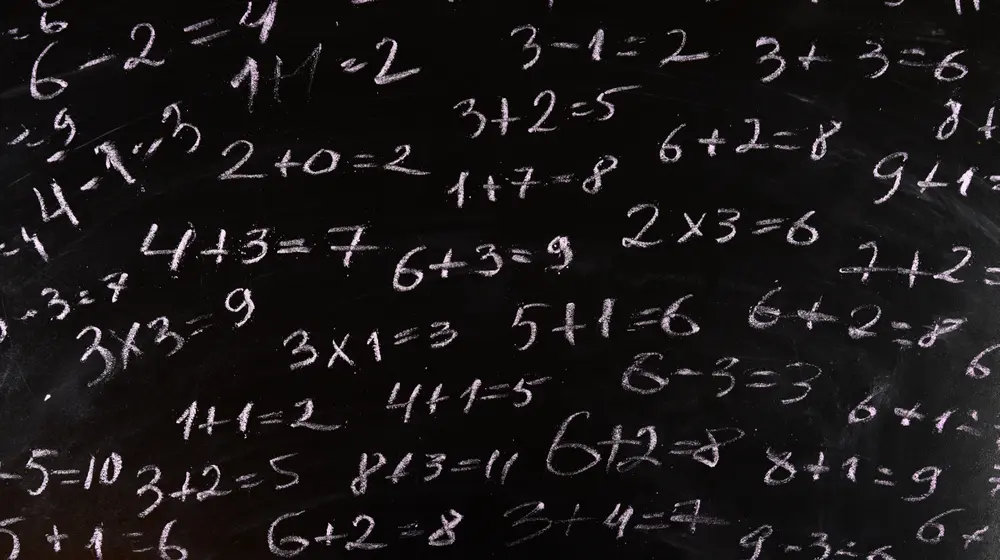 6 - 2 = 4
1+1 = 2
3 - 1 = 2
3 + 3 = 6
3 + 2 = 5
8 +
= 9
4 - 1 = 3
2 + 0 = 2
1 + 7 = 8
6 + 2 = 8
9 + 1 =
4 + 3 = 7
6 + 3 = 9
2 x 3 = 6
7 + 2 =
- 3 = 7
3 x 3 = 9
3 x 1 = 3
5 + 1 = 6
6 + 2 = 8
6
1 + 1 = 2
4 + 1 = 5
6 - 3 = 3
6 + 1 =
5 = 10
3 + 2 = 5
8 + 3 = 11
6 + 2 = 8
8 + 1 = 9
5 + 1 = 6
6 + 2 = 8
3 + 4 = 7
9 - 3 = 6
6 +